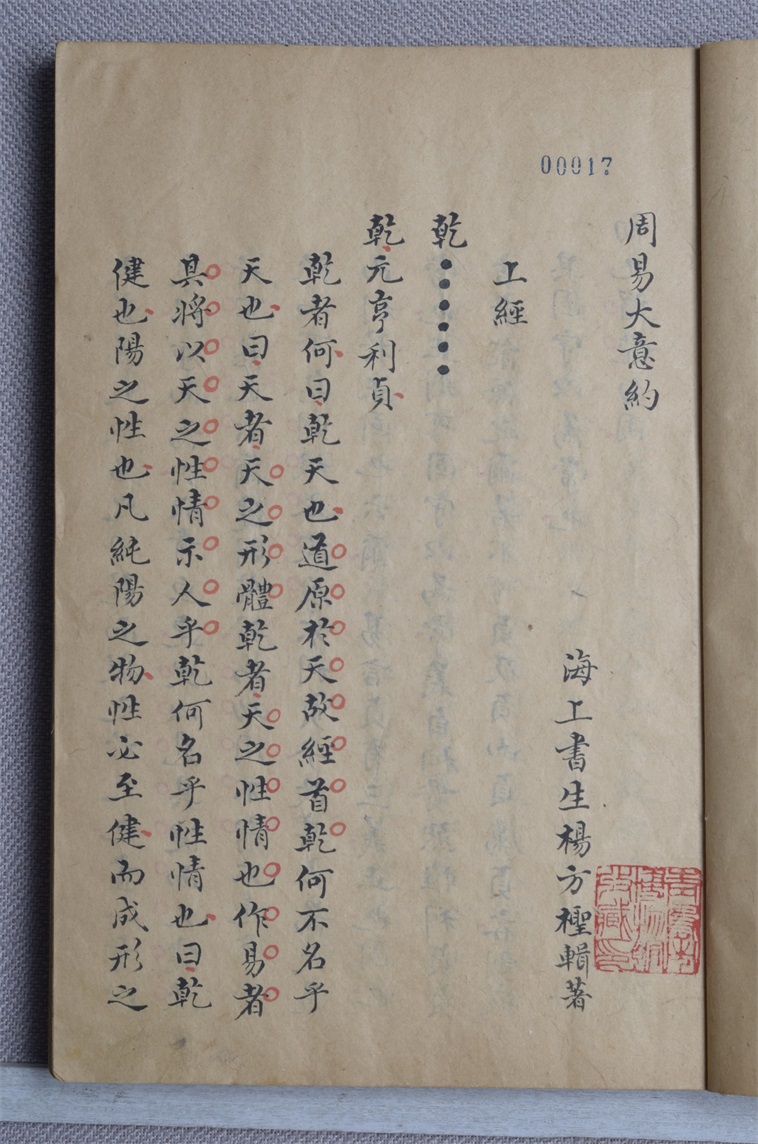 00017
周易大意約
海上書生楊方檉輯著
上經
乾••••••
乾元亨利貞
乾者何曰乾天也道原於天故經首乾何不名乎
天也曰天者天之形體乾者天之性情也作易者
具將以天之性情示人乎乾何名乎性情也曰乾
健也陽之性也凡純陽之物性必至健而成形之